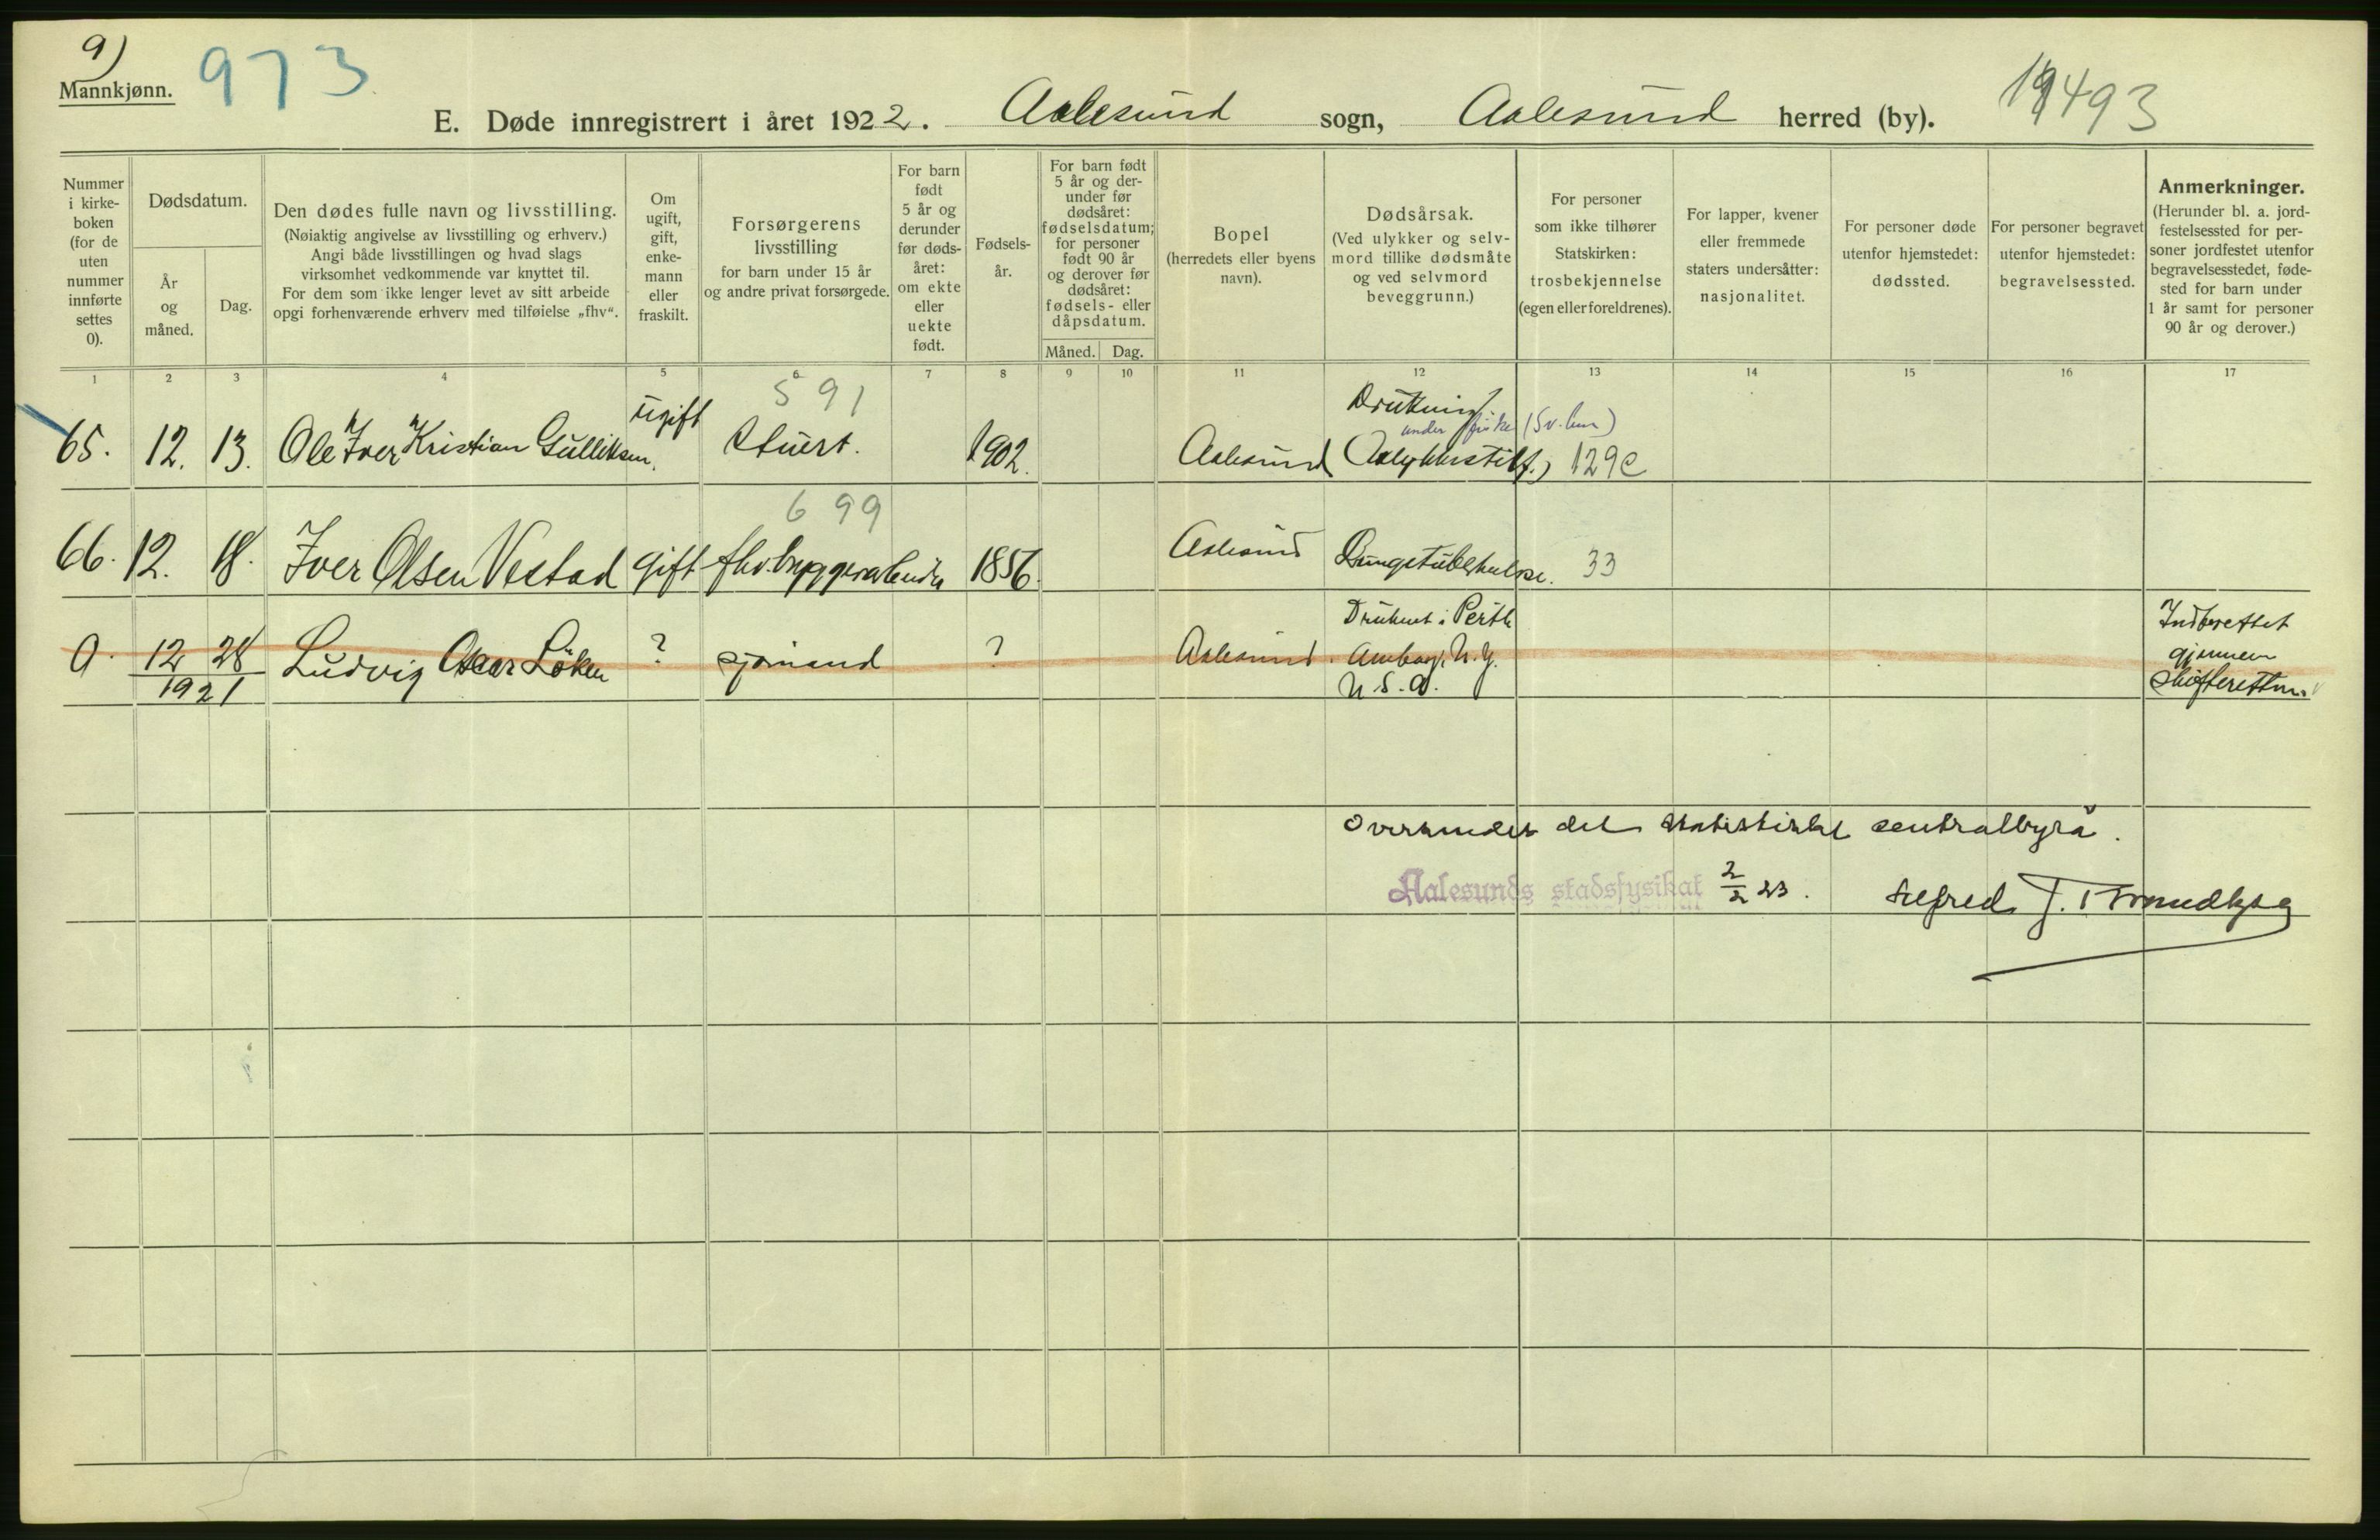 9)
Mannkjønn.
973
E. Døde innregistrert i året 1922. Aalesund sogn, Aalesund herred (by).
493
Nummer i kirke-boken (for de uten nummer innførte settes 0).
Dødsdatum.
År og måned.
Dag.
Den dødes fulle navn og livsstilling.
(Nøiaktig angivelse av livsstilling og erhverv.)
Angi både livsstillingen og hvad slags
virksomhet vedkommende var knyttet til.
For dem som ikke lenger levet av sitt arbeide
opgi forhenværende erhverv med tilføielse „fhv“.
Om ugift, gift, enke-mann eller fraskilt.
Forsørgerens livsstilling
for barn under 15 år
og andre privat forsørgede.
For barn født 5 år og derunder før døds-året: om ekte eller uekte født.
Fødsels-år.
For barn født 5 år og der-under før dødsåret: fødselsdatum; for personer født 90 år og derover før dødsåret: fødsels- eller dåpsdatum.
Måned. Dag.
Bopel
(herredets eller byens navn).
Dødsårsak.
(Ved ulykker og selv-mord tillike dødsmåte og ved selvmord beveggrunn.)
For personer som ikke tilhører Statskirken: trosbekjennelse (egen eller foreldrenes).
For lapper, kvener eller fremmede staters undersåtter: nasjonalitet.
For personer døde utenfor hjemstedet: dødssted.
For personer begravet utenfor hjemstedet: begravelsessted.
Anmerkninger.
(Herunder bl. a. jord-festelsessted for per-soner jordfestet utenfor begravelsesstedet, føde-sted for barn under 1 år samt for personer 90 år og derover.)
1 2 3 4 5 6 7 8 9 10 11 12 13 14 15 16 17
591
65. 12. 13. Ole Iver Kristian Gulliksen. ugift Stuert. 1902. Aalesund Drukning
under fiske
129c
699
66. 12. 18. Iver Olsen Vestad gift fhv. bryggearbeider 1856. Aalesund Lungetuberkulose. 33
0. 12 28 Ludvig Oscar Löken ? sjömand ? Aalesund. Druknet i Perth
1921
Amboy, N.Y.
U.S.A.
Indberettet
gjennem
skifteretten.
Oversendes det statistiske centralbyrå.
Aalesunds stadsfysikat 2/2 23. Alfred J.